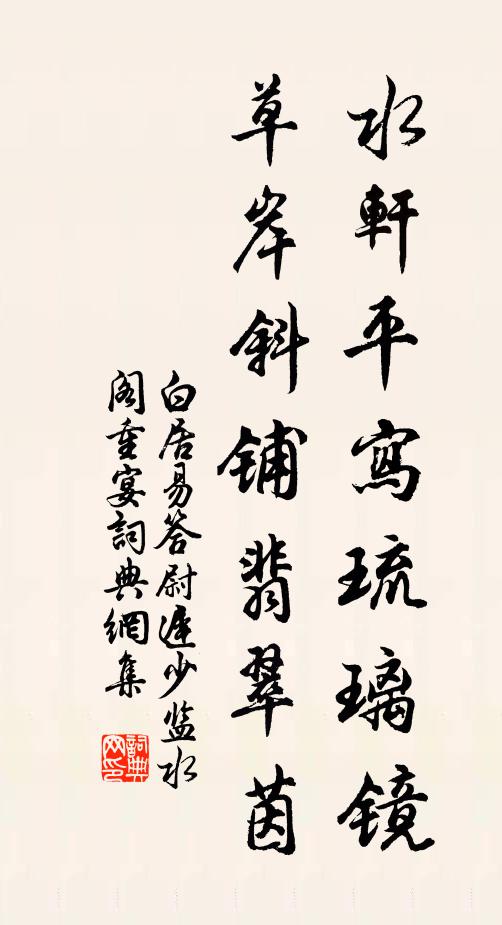 水軒平寫琉璃鏡
草岸斜鋪翡翠茵
白居易答尉遲少监水
閣重宴詞典網集
詞典
网印